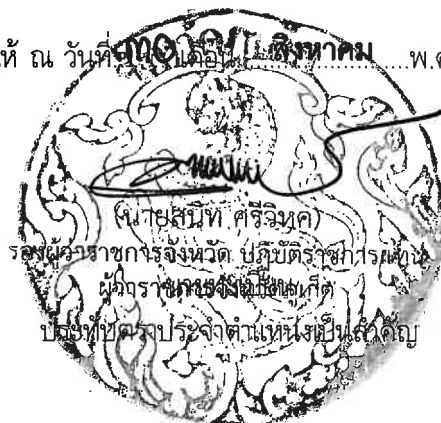 ห้ ณ วันที่ เดือน สิงหาคม พ.ศ
(นายสนิท ศรีวิหค)
รองผู้ว่าราชการจังหวัด ปฏิบัติราชการแทน
ผู้ว่าราชการจังหวัดภูเก็ต
ประทับตราประจำตำแหน่งเป็นสำคัญ